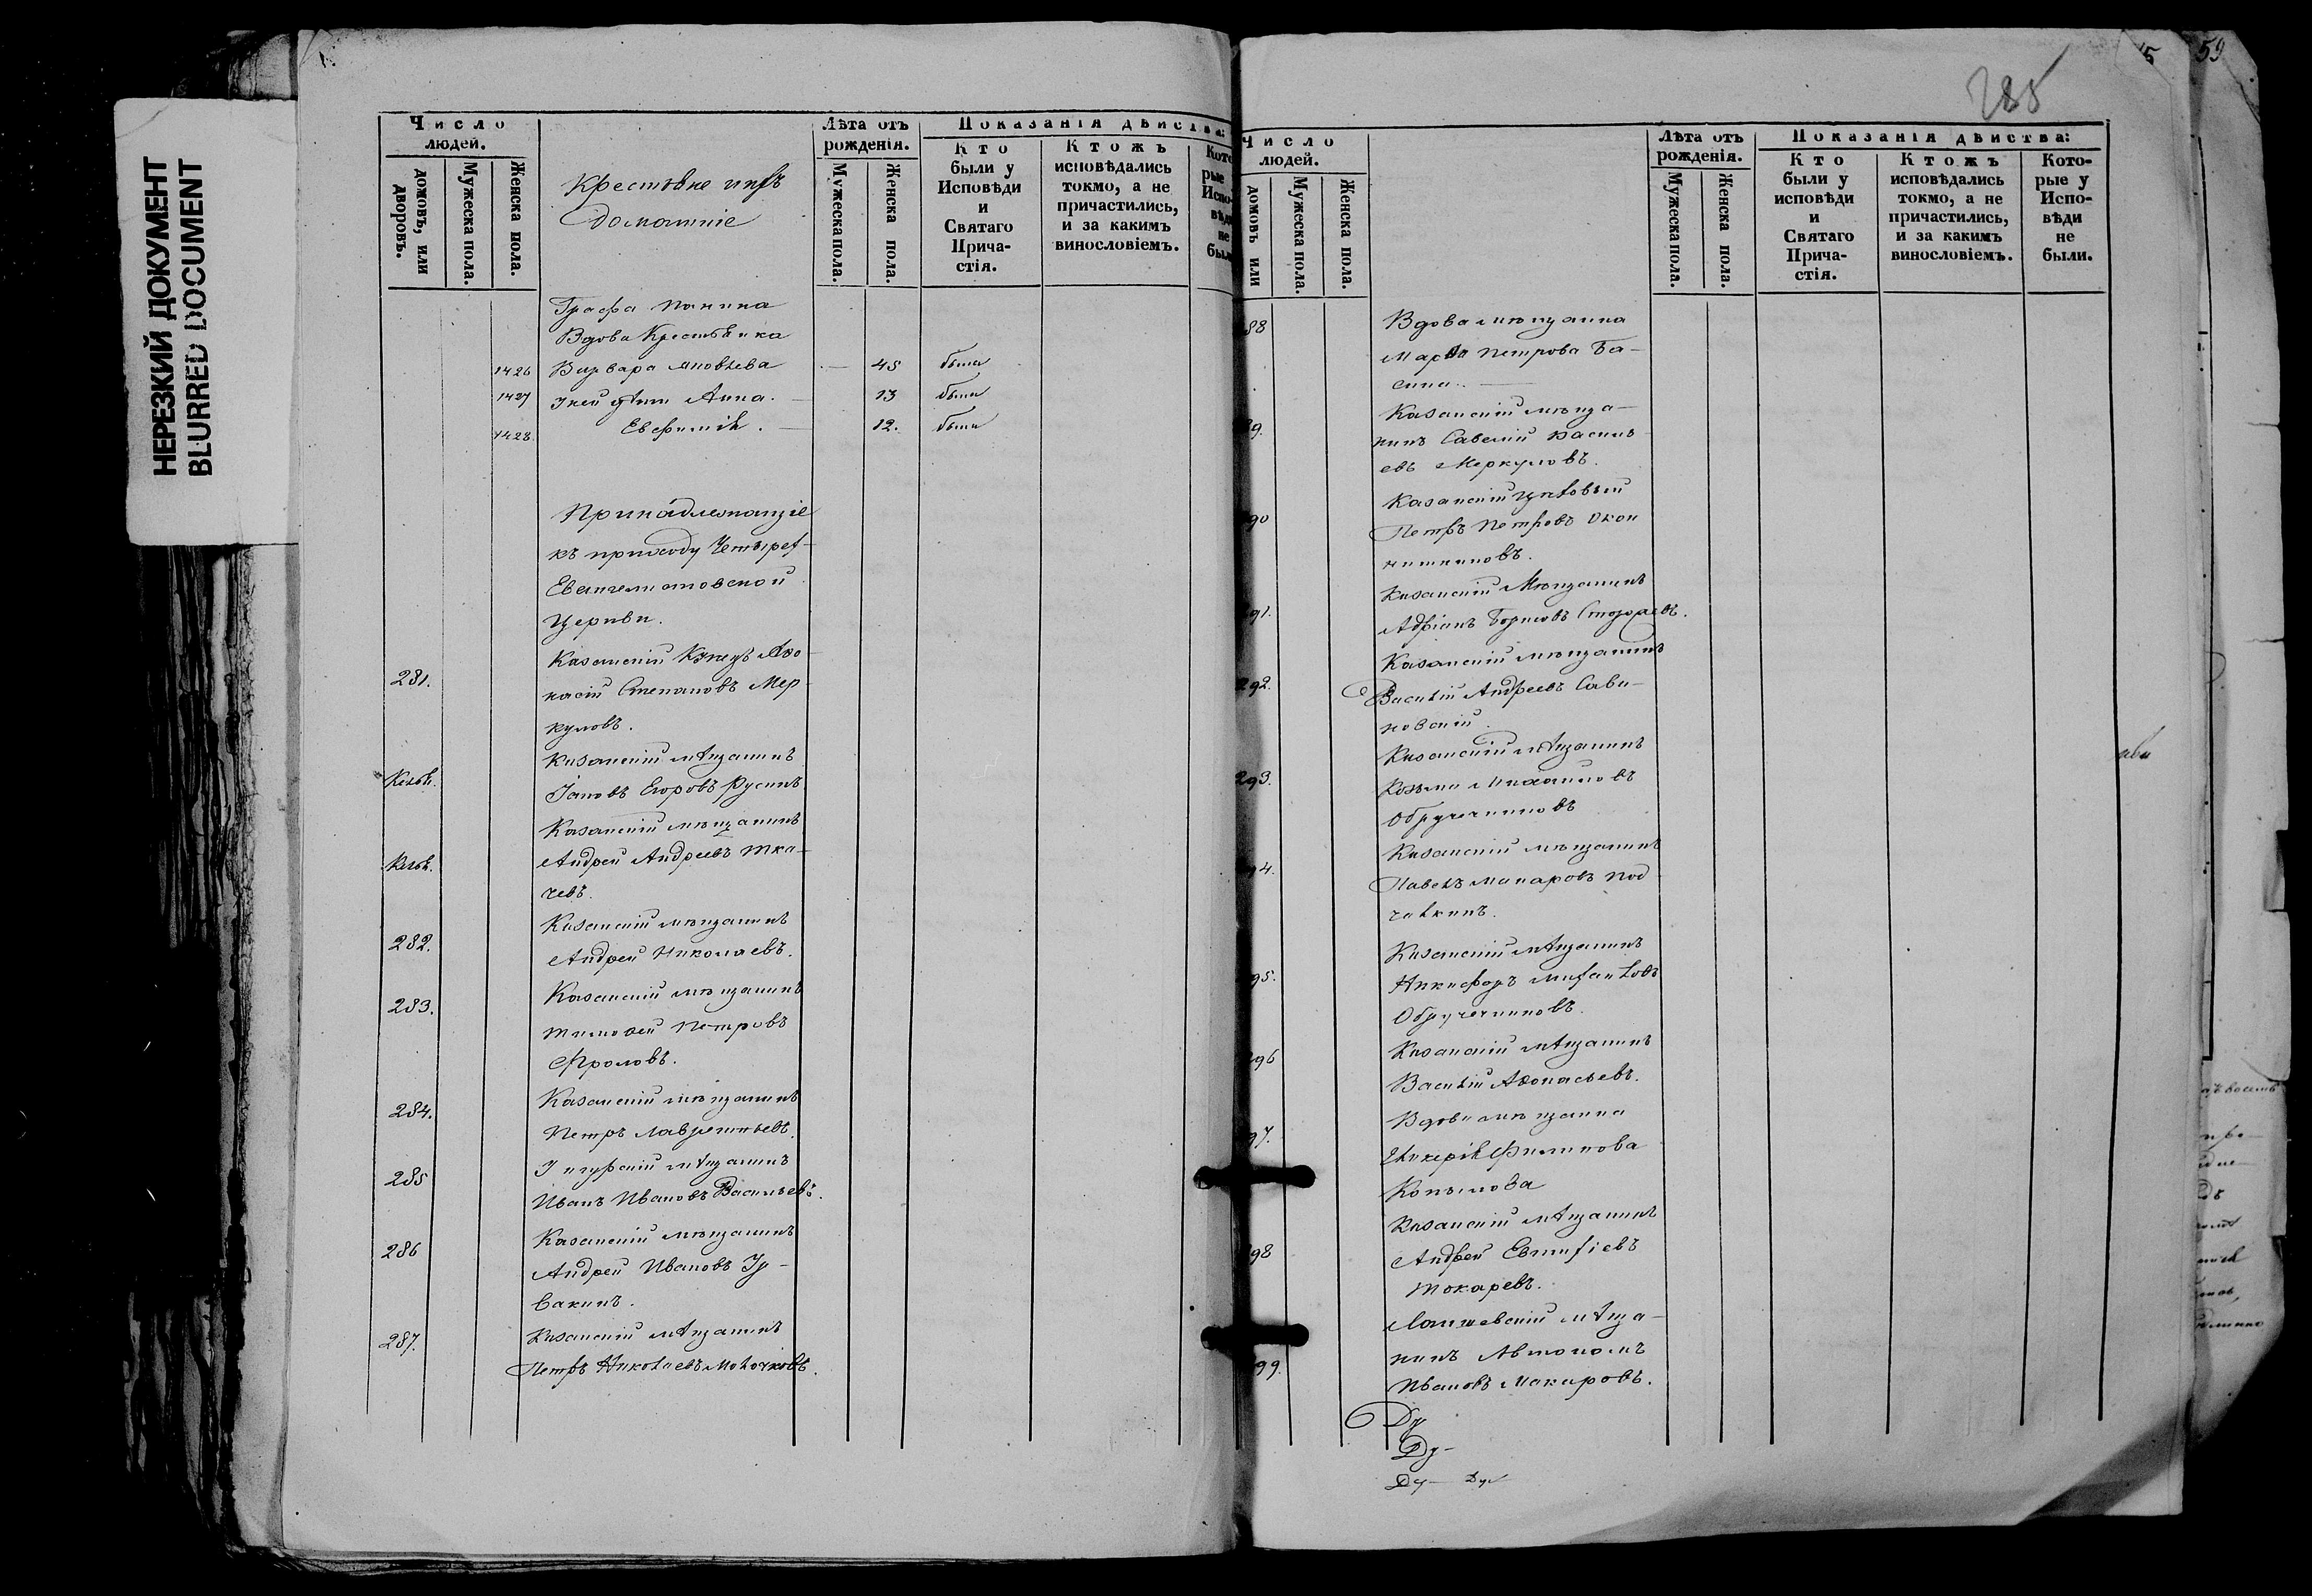 НЕРЕЗКИЙ ДОКУМЕНТ
BLURRED DOCUMENT
Число людей.
домовъ, или дворовъ.
Мужеска пола.
Женска пола.
Крестьяне ихъ
домашніе
Лѣта отъ рожденія.
Мужеска пола.
Женска пола.
Показанія двиства:
Кто были у Исповѣди и Святаго Прича-стія.
Ктожъ исповѣдались токмо, а не причастились, и за какимъ винословіемъ.
Графа Панина
Вдова Крестьянка
1426 Варвара Яковлева — 45 была
1427 Ужей дѣти Анна. — 13 была
1428. Евфимія. — 12. была
Принадлежащіе
къ приходу Четырех-
Евангелистовской
Церкви.
281. Казанскій Купецъ Аѳо-
насій Степановъ Мер-
куловъ.
Казанскій мѣщанинъ
Келья. Іаковъ Егоровъ Русинъ
Казанскій мѣщанинъ
Келья. Андрей Андреевъ Тка-
чевъ.
282. Казанскій мѣщанинъ
Андрей Николаевъ.
283. Казанскій мѣщанинъ
Тимоѳей Петровъ
Фроловъ.
284. Казанскій мѣщанинъ
Петръ Лаврентьевъ.
285 мѣщанинъ
Иванъ Ивановъ Васильевъ.
286 Казанскій мѣщанинъ
Андрей Ивановъ Гу-
бакинъ.
287. Казанскій мѣщанинъ
Петръ Николаевъ Молочковъ.
285
5
59
Число людей.
домовъ или
Мужеска пола.
Женска пола.
Лѣта отъ рожденія.
Мужеска пола.
Женска пола.
Показанія двиства:
Кто были у исповѣди и Святаго Прича-стія.
Ктожъ исповѣдались токмо, а не причастились, и за какимъ винословіемъ.
Кото-рые у Испо-вѣди не были.
88 Вдова мѣщанка
Марѳа Петрова Ба-
сина. —
Казанскій мѣща-
9. нинъ Савелій Васильевъ Меркуловъ.
Казанскій цѣховый
90 Петръ Петровъ Окон-
нишниковъ.
Казанскій Мѣщанинъ
91. Адріанъ Борисовъ
Казанскій мѣщанинъ
292. Василій Андреевъ Сави-
новскій.
Казанскій мѣщанинъ
293. Козьма Михайловъ
Обручниковъ
Казанскій мѣщанинъ
94. Павелъ Макаровъ Под-
Казанскій мѣщанинъ
95. Никифоръ Михайловъ
Обручниковъ.
296 Казанскій мѣщанинъ
Василій Аѳонасьевъ.
Вдова мѣщанка
97. Гликерія Филипова
Копылова
Казанскій мѣщанинъ
98 Андрей Евтифіевъ
Токаревъ.
Лаишевскій мѣща-
99. нинъ Автономъ
Ивановъ Макаровъ.
Ду
Ду-
Ду- Ду